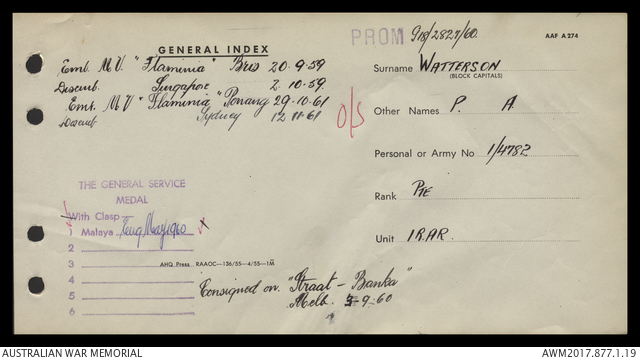 PROM 918/2827/60. AAF A274
GENERAL INDEX
Emb. M.V. "Flaminia" Bris 20-9-59
Disemb. Singapore 2.10.59.
Emb. M V "Flaminia" Penang 29-10-61
Disemb Sydney 12 11-61
O/S
Surname WATTERSON
(BLOCK CAPITALS)
Other Names P. A.
Personal or Army No 1/4782
Rank PTE
Unit 1 R.A.R.
THE GENERAL SERVICE
MEDAL
With Clasp
Malaya 1960
2
3
4
5
6
AHQ Press RAAOC—136/55—4/55—1M
Consigned on "Straat - Banka"
Melb. 5-9-60
AUSTRALIAN WAR MEMORIAL
AWM2017.877.1.19